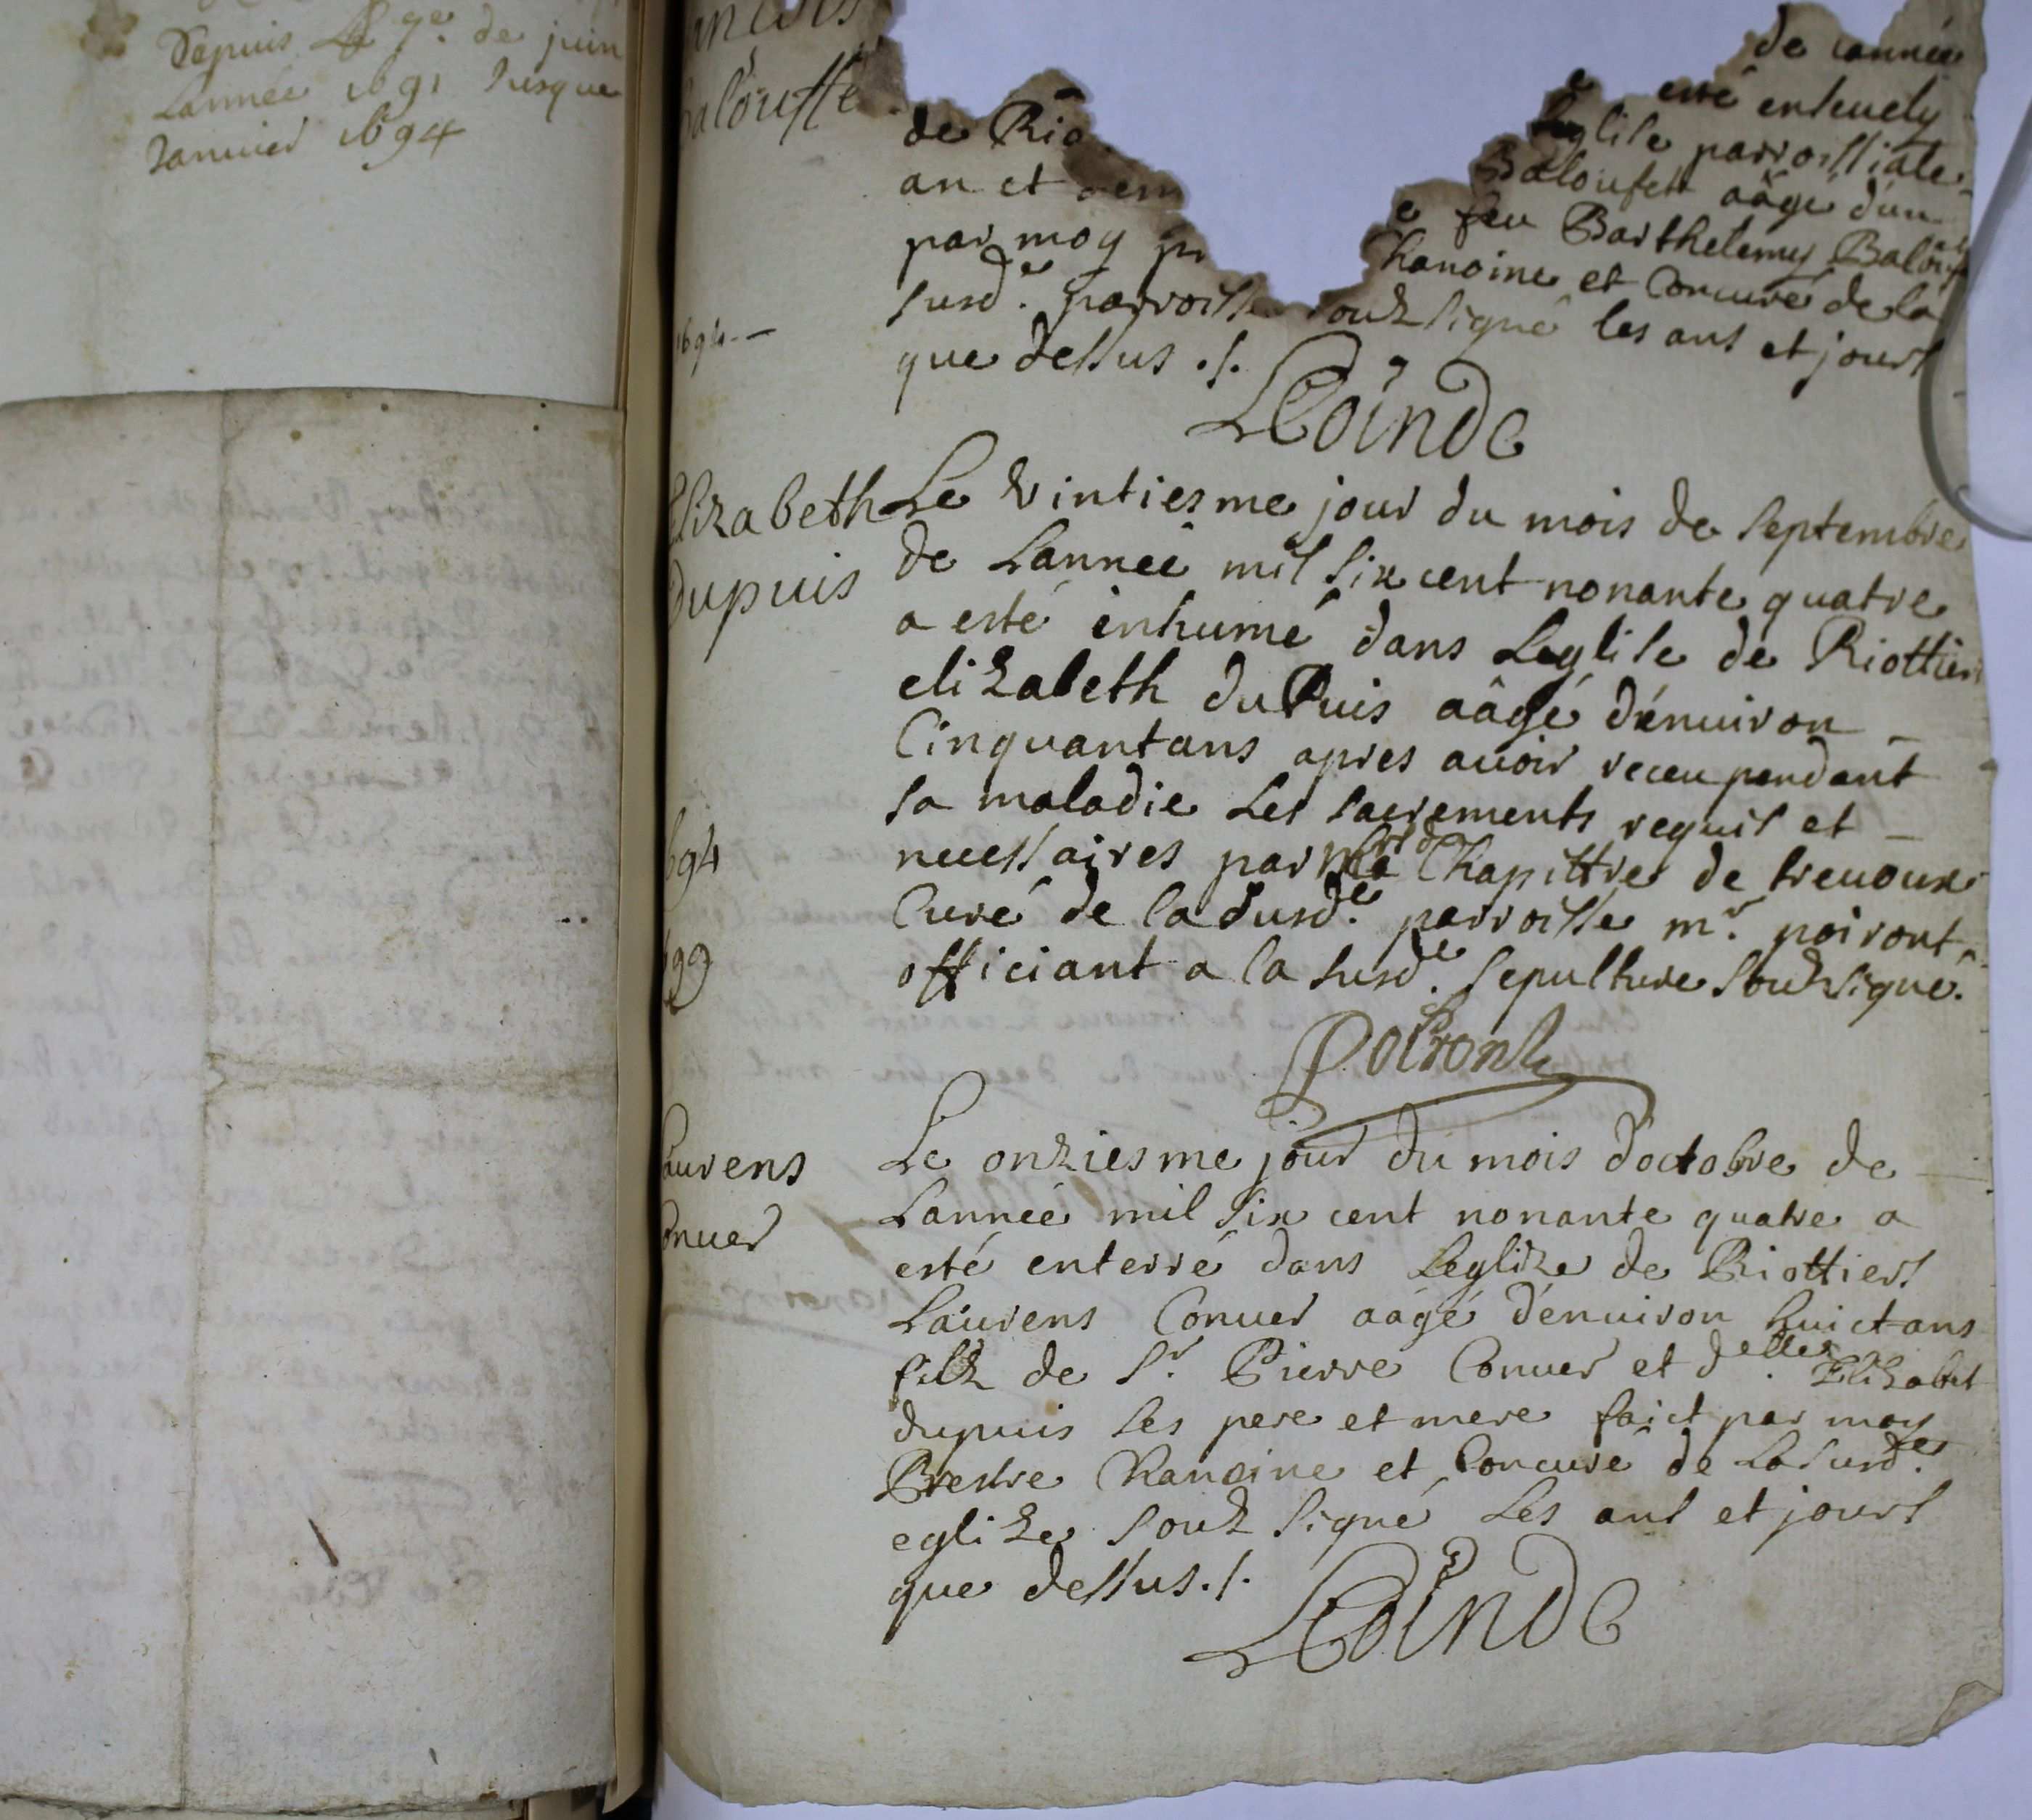 Depuis Le 9e. de juin
Lannée 1691 Jusque
Janvier 1694
de Lannée
esté enseuely
Leglise parroissiale
de Rio
Baloufet aâgé d'un
an et dem
e feu Barthelemy Balouf
par moy pr
hanoine et Concuré de la
susde. parroisse soubsigné les ans et jours
1694
que dessus ./.
LCoinde
Elizabeth
Dupuis
Le vintiesme jour du mois de septembre
de Lanneé mil six cent nonante quatre
a esté inhumé dans Leglise de Riottiers
elizabeth duPuis aâgé d'enuiron
Cinquantans apres auoir receu pendant
sa maladie Les sacrements requis et
694
necessaires par Chapittre de treuoux
Curé de la susde. parroisse mr. poiront
99
officiant a la susde. sepulture soubsigné.
Poiront
Laurens
Conuer
Le onziesme jour du mois d'octobre de
Lanneé mil six cent nonante quatre a
esté enterré dans Leglize de Riottiers
Laurens Conuer aâgé d'enuiron huictans
filz de Sr. Pierre Conuer et delle. Elizabet
dupuis ses pere et mere faict par moy
Prestre Chanoine et Concuré de La susde.
eglize soubsigné Les ans et jours
que dessus ./.
LCoinde